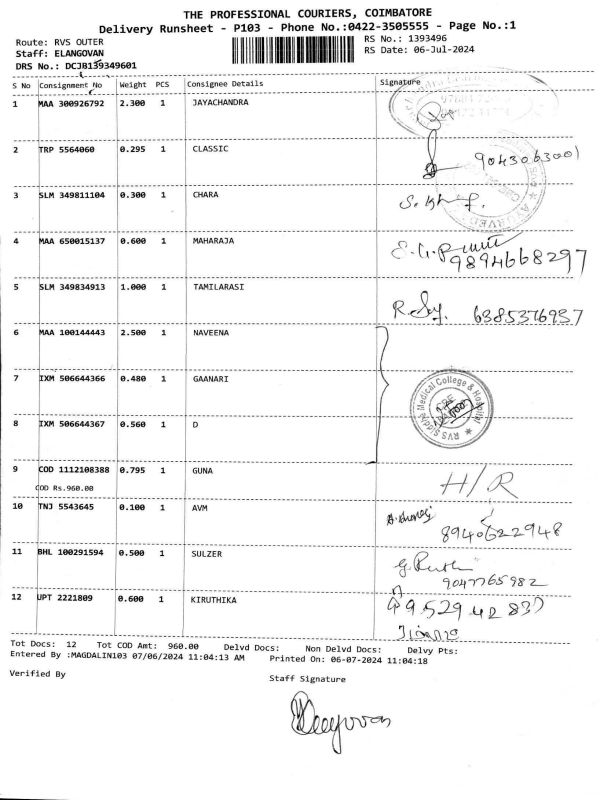 THE PROFESSIONAL COURIERS, COIMBATORE
Delivery Runsheet - P103 - Phone No.:0422-3505555 - Page No.:1
Route: RVS OUTER
RS No.: 1393496
Staff: ELANGOVAN
RS Date: 06-Jul-2024
DRS No.: DCJB139349601
S No Consignment No Weight PCS Consignee Details Signature
1 MAA 300926792 2.300 1 JAYACHANDRA
2 TRP 5564060 0.295 1 CLASSIC 9043063001
3 SLM 349811104 0.300 1 CHARA
4 MAA 650015137 0.600 1 MAHARAJA
9894668297
5 SLM 349834913 1.000 1 TAMILARASI
6385376937
6 MAA 100144443 2.500 1 NAVEENA
7 IXM 506644366 0.480 1 GAANARI
RVS Siddha Medical College & Hospital
8 IXM 506644367 0.560 1 D
9 COD 1112108388 0.795 1 GUNA
COD Rs.960.00
H/R
10 TNJ 5543645 0.100 1 AVM
8940622948
11 BHL 100291594 0.500 1 SULZER
9047765982
12 UPT 2221809 0.600 1 KIRUTHIKA
Tot Docs: 12 Tot COD Amt: 960.00 Delvd Docs: Non Delvd Docs: Delvy Pts:
Entered By :MAGDALIN103 07/06/2024 11:04:13 AM Printed On: 06-07-2024 11:04:18
Verified By Staff Signature